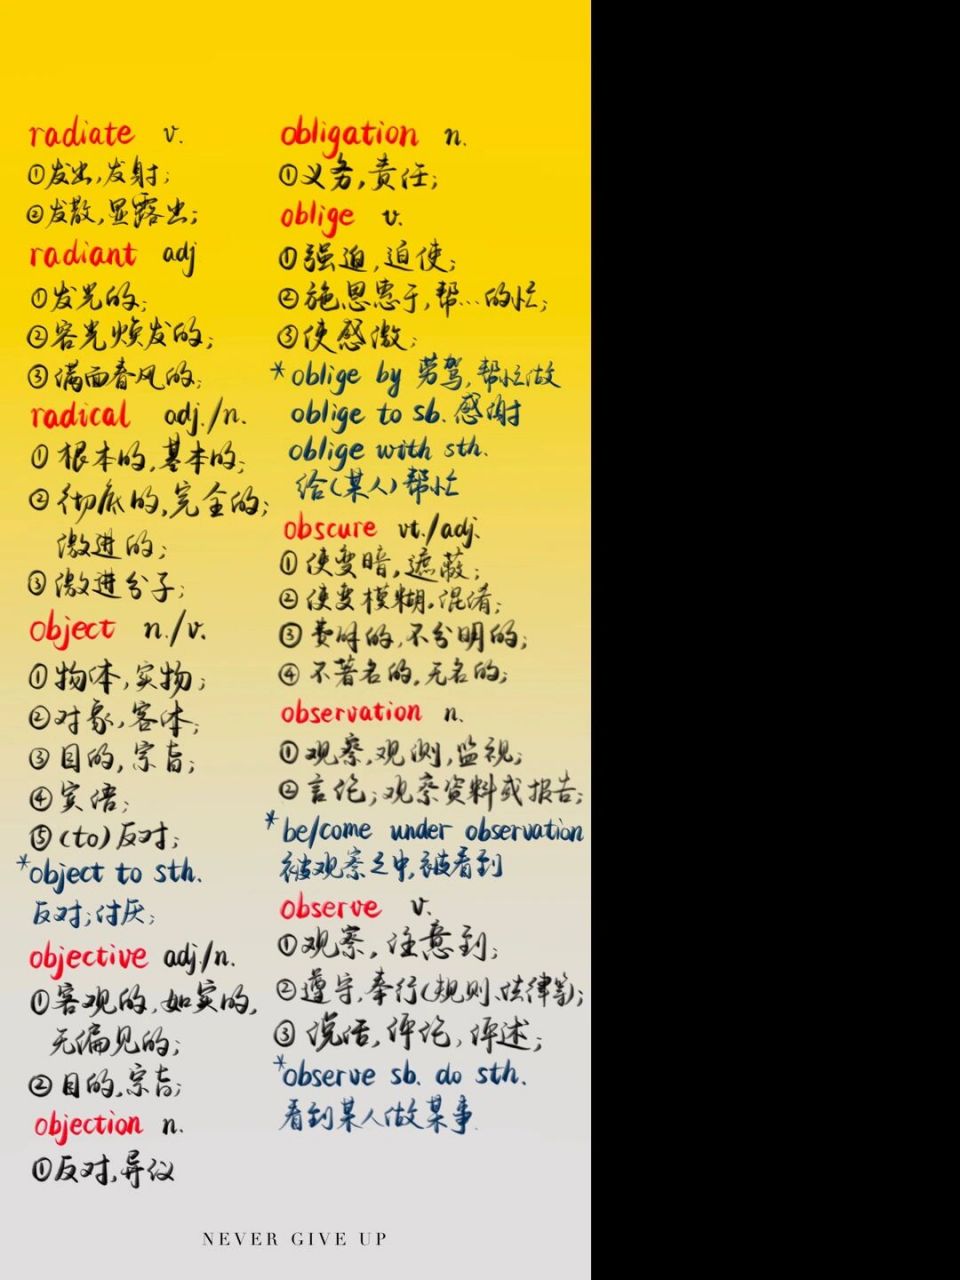 radiate v.
①发出,发射;
②发散,显露出;
radiant adj
①发光的;
②容光焕发的;
③满面春风的;
radical adj./n.
①根本的,基本的;
②彻底的,完全的;
激进的;
③激进分子;
object n./v.
①物体,实物;
②对象,客体;
③目的,宗旨;
④宾语;
⑤(to)反对;
*object to sth.
反对;讨厌;
objective adj./n.
①客观的,如实的,
无偏见的;
②目的,宗旨;
objection n.
①反对,异议
obligation n.
①义务,责任;
oblige v.
①强迫,迫使;
②施恩惠于,帮…的忙;
③使感激;
*oblige by 劳驾,帮忙做
oblige to sb.感谢
oblige with sth.
给(某人)帮忙
obscure vt./adj.
①使变暗,遮蔽;
②使变模糊,混淆;
③费解的,不分明的;
④不著名的,无名的;
observation n.
①观察,观测,监视;
②言论;观察资料或报告;
*be/come under observation
被观察之中,被看到
observe v.
①观察,注意到;
②遵守,奉行(规则、法律等);
③说话,评论,评述;
*observe sb. do sth.
看到某人做某事.
NEVER GIVE UP